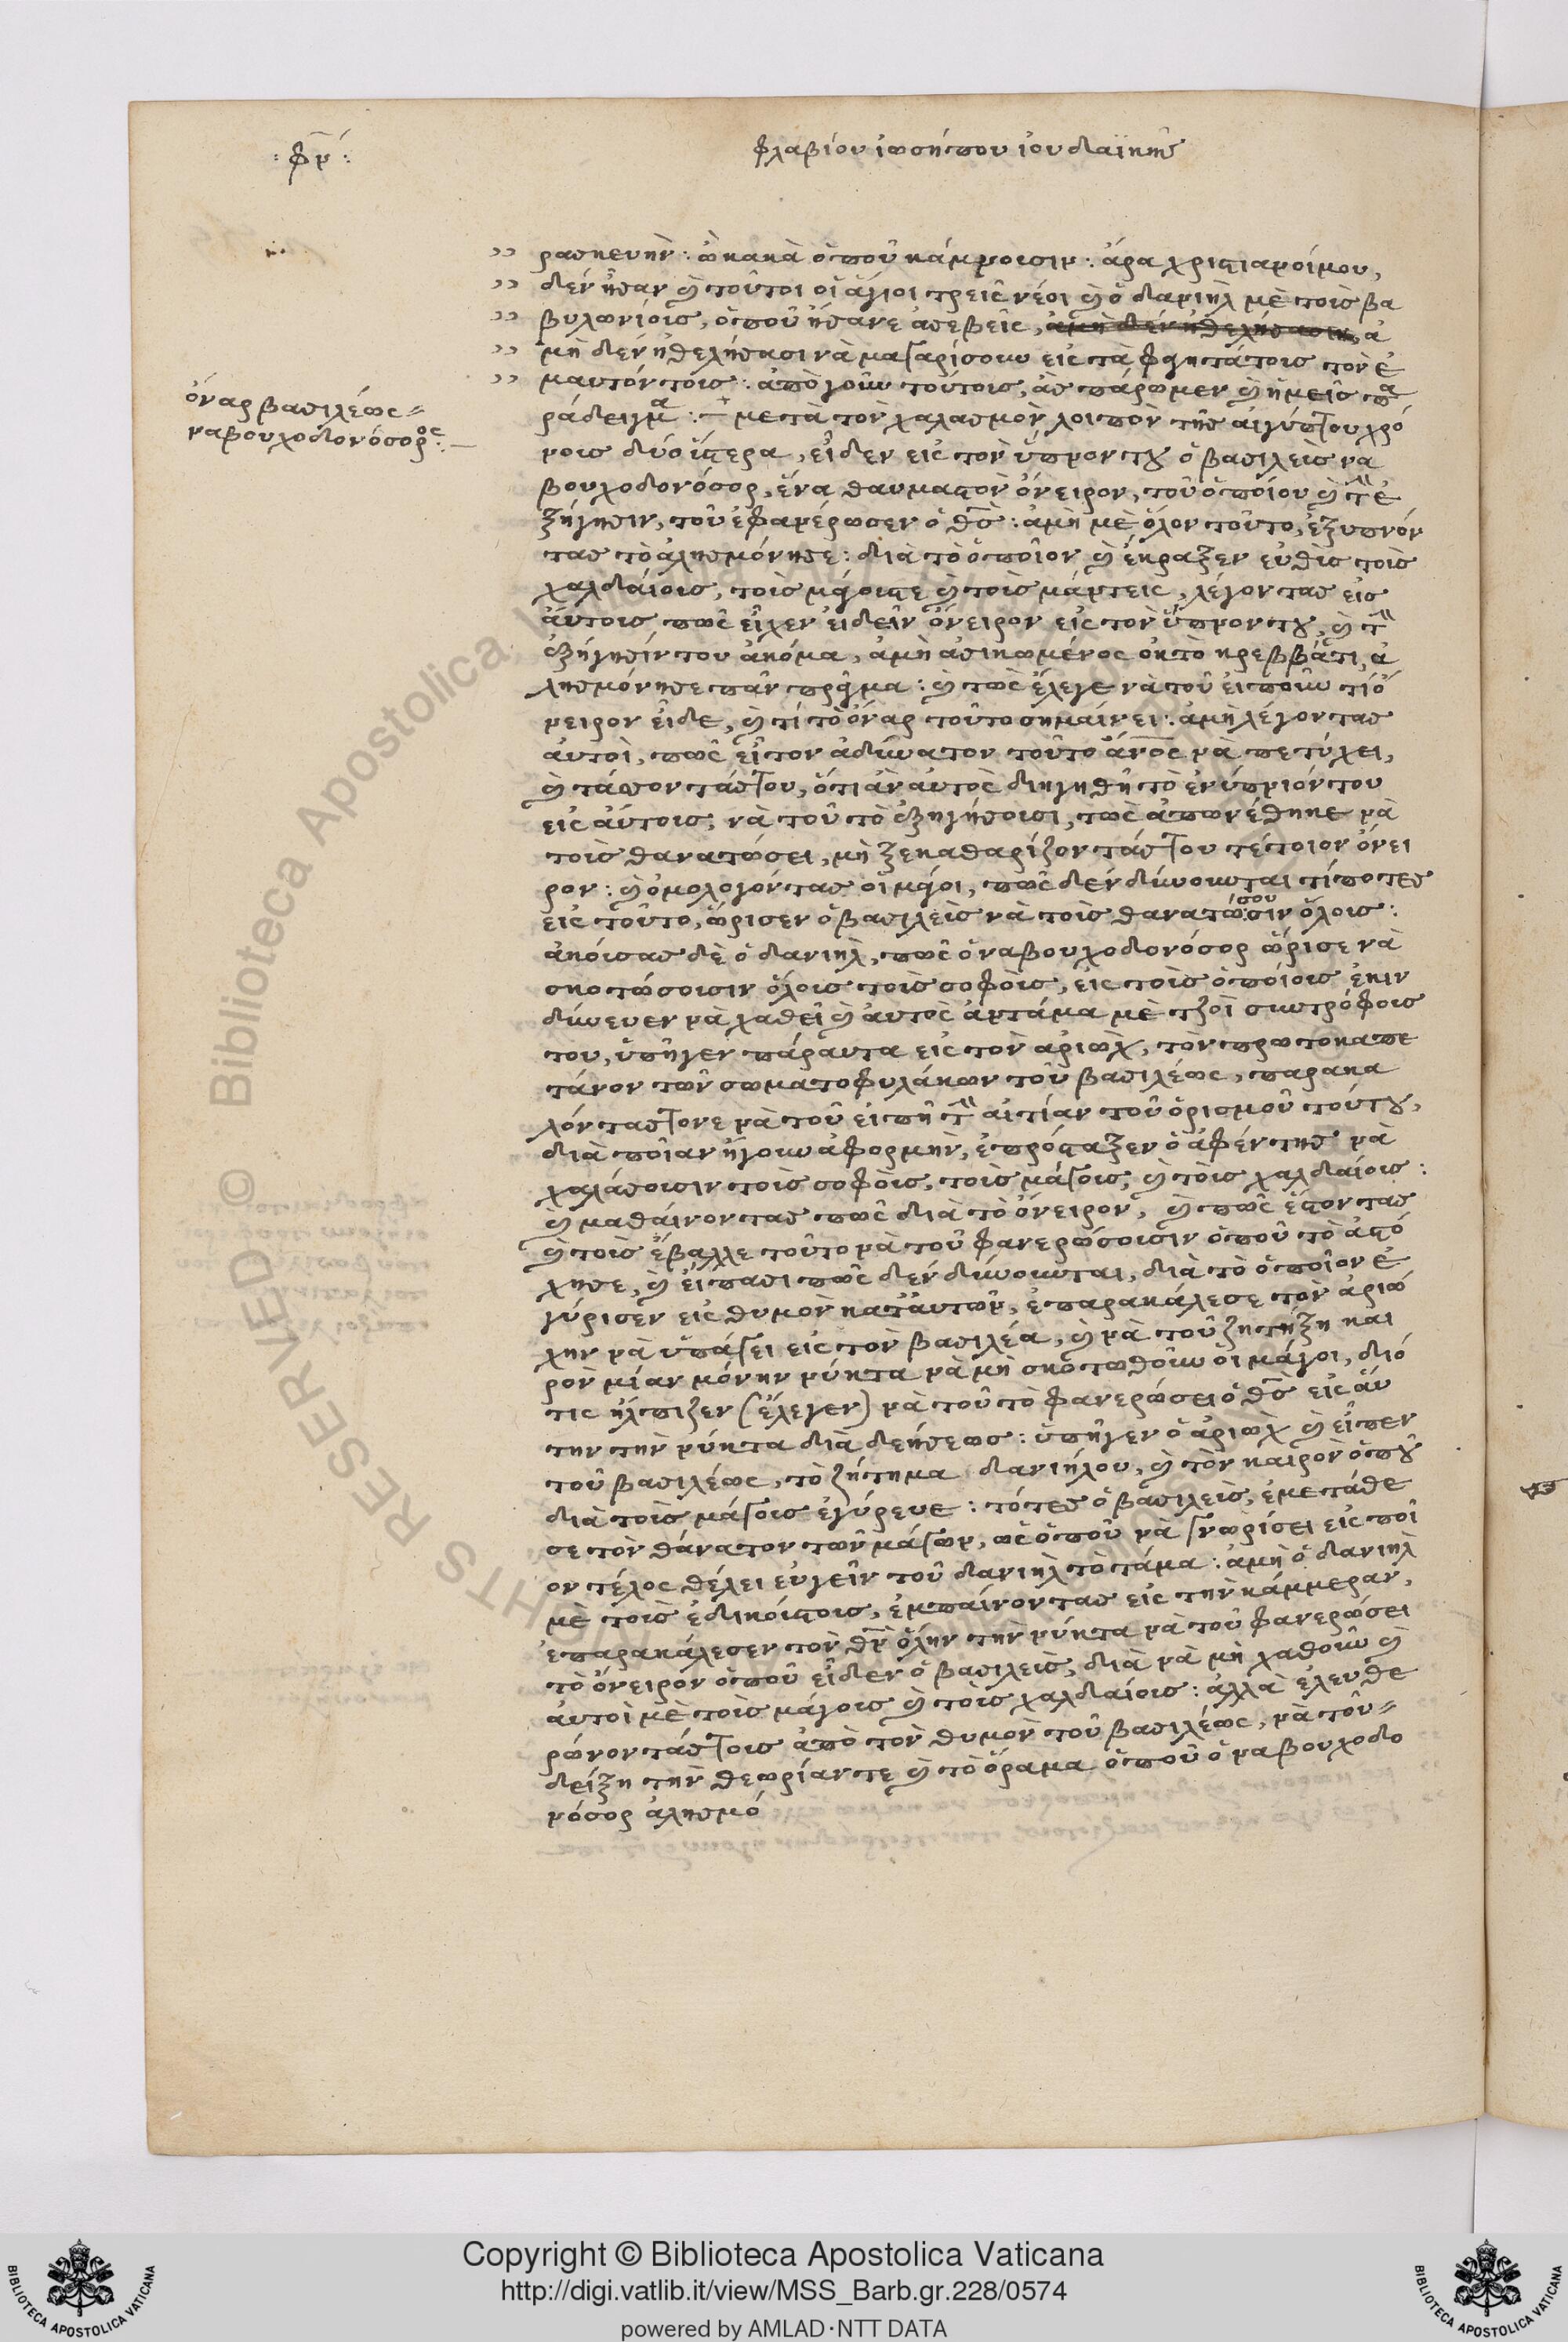 : φκ :
φλαβίου ἰωσήπου ἰουδαϊκῆς
ρασκευήν : ὦ κακὰ ὁποῦ κάμνοισιν : ἆρα χριστιανοί μου,
δὲν ἦσαν καὶ τοῦτοι οἱ ἅγιοι τρεῖς νέοι καὶ ὁ δανιὴλ μὲ τοὶς βα
βυλωνίοις, ὁποῦ ἦσανε ἀσεβεῖς, ἀμὴ δὲν ἠθελήσασιν, ἀ
μὴ δὲν ἠθελήσασι νὰ μαγαρίσουν εἰς τὰ φαγητά τοις τὸν ἐ
μαυτόν τοις : ἀπὸ γοῦν τούτοις, ἂς πάρωμεν καὶ ἡμεῖς πα
ράδειγμα : + μετὰ τὸν χαλασμὸν λοιπὸν τῆς αἰγύπτου χρό
νοις δύο ὕστερα, εἶδεν εἰς τὸν ὕπνον του ὁ βασιλεὶς να
βουχοδονόσορ, ἕνα θαυμαστὸν ὄνειρον, τοῦ ὁποίου καὶ τὴν ἐ
ξήγησιν, τοῦ ἐφανέρωσεν ὁ θς : ἀμὴ μὲ ὅλον τοῦτο, ἐξυπνόν
τας τὸ ἀλησμόνησε : διὰ τὸ ὁποῖον καὶ ἔκραξεν εὐθὶς τοὶς
χαλδαίοις, τοὶς μάγοις τε καὶ τοὶς μάντεις, λέγοντας εἰς
αὔτοις πῶς εἶχεν εἰδεῖν ὄνειρον εἰς τὸν ὕπνον του, καὶ τὴν
ἐξήγησίν του ἀκόμα, ἀμὴ ἀσικωμένος ὀκ τὸ κρεββάτι, ἀ
λησμόνησε πᾶν πρᾶγμα : καὶ τῶς ἔλεγε νὰ τοῦ εἰποῦν τί ὄ
νειρον εἶδε, καὶ τί τὸ ὄναρ τοῦτο σημαίνει : ἀμὴ λέγοντας
αὐτοὶ, πῶς εἶτον ἀδύνατον τοῦτο ἄνος νὰ πετύχει,
καὶ τάσσοντάς του, ὅτι ἂν αὐτὸς διηγηθῆ τὸ ἐνύπνιόν του
εἰς αὔτοις, νὰ τοῦ τὸ ἐξηγήσοισι, τῶς ἀπωκρίθηκε νὰ
τοὶς θανατώσει, μὴ ξεκαθαρίζοντάς του τέτοιον ὄνει
ρον : καὶ ὁμολογόντας οἱ μάγοι, πῶς δὲν δύνουνται τίποτες
εἰς τοῦτο, ὥρισεν ὁ βασιλεὶς νὰ τοὶς θανατώσουσιν ὅλοις :
ἀκοίσας δὲ ὁ δανιὴλ, πῶς ὁ ναβουχοδονόσορ ὥρισε νὰ
σκοτώσοισιν ὅλοις τοὶς σοφοὶς, εἰς τοὶς ὁποίοις ἐκιν
δύνευεν νὰ χαθεῖ καὶ αὐτὸς ἀντάμα μὲ τζοὶ συντρόφοις
του, ὑπῆγεν πάραυτα εἰς τὸν ἀριὼχ, τὸν πρωτοκαπε
τάνον τῶν σωματοφυλάκων τοῦ βασιλέως, παρακα
λόντας τονε νὰ τοῦ εἰπῆ τὴν αἰτίαν τοῦ ὁρισμοῦ τούτου,
διὰ ποῖαν ἤγουν ἀφορμὴν, ἐπρόσταξεν ὁ ἀφέντης νὰ
χαλάσοισιν τοὶς σοφοὶς, τοὶς μάγοις, καὶ τοὶς χαλδαίοις :
καὶ μαθαίνοντας πῶς διὰ τὸ ὄνειρον, καὶ πῶς ἔστοντας
καὶ τοὶς ἔβαλλε τοῦτο νὰ τοῦ φανερώσοισιν ὁποῦ τὸ ἀστό
χησε, καὶ εἴπασι πῶς δὲν δύνουνται, διὰ τὸ ὁποῖον ἐ
γύρισεν εἰς θυμὸν κατ' αὐτῶν, ἐπαρακάλεσε τὸν ἀριώ
χην νὰ ὑπάγει εἰς τὸν βασιλέα, καὶ νὰ τοῦ ζητήξη και
ρὸν μίαν μόνην νύκτα νὰ μὴ σκοτωθοῦν οἱ μάγοι, διό
τις ἤλπιζεν (ἔλεγεν) νὰ τοῦ τὸ φανερώσει ὁ θς εἰς αὔ
την τὴν νύκτα διὰ δεήσεως : ὑπῆγεν ὁ ἀριὼχ καὶ εἶπεν
τοῦ βασιλέως, τὸ ζήτημα δανιήλου, καὶ τὸν καιρὸν ὁποῦ
διὰ τοὶς μάγοις ἐγύρευε : τότες ὁ βασιλεὶς, ἐμετάθε
σε τὸν θάνατον τῶν μάγων, ὡς ὁποῦ νὰ γνωρίσει εἰς ποῖ
ον τέλος θέλει εὐγεῖν τοῦ δανιὴλ τὸ τάμα : ἀμὴ ὁ δανιὴλ
μὲ τοὶς ἐδικοίς τοις, ἐμπαίνοντας εἰς τὴν κάμμεραν,
ἐπαρακάλεσεν τὸν θν ὅλην τὴν νύκτα νὰ τοῦ φανερώσει
τὸ ὄνειρον ὁποῦ εἶδεν ὁ βασιλεὶς, διὰ νὰ μὴ χαθοῦν καὶ
αὐτοὶ μὲ τοὶς μάγοις καὶ τοὶς χαλδαίοις : ἀλλὰ ἐλευθε
ρώνοντάς τοις ἀπὸ τὸν θυμὸν τοῦ βασιλέως, νὰ τοῦ
δείξη τὴν θεωρίαν τε καὶ τὸ ὅραμα ὁποῦ ὁ ναβουχοδο
νόσορ ἀλησμό
ὄναρ βασιλέως
ναβουχοδονόσορος :
RIGHTS RESERVED © Biblioteca Apostolica Vaticana
Copyright © Biblioteca Apostolica Vaticana
http://digi.vatlib.it/view/MSS_Barb.gr.228/0574
powered by AMLAD·NTT DATA
BIBLIOTECA APOSTOLICA VATICANA
BIBLIOTECA APOSTOLICA VATICANA